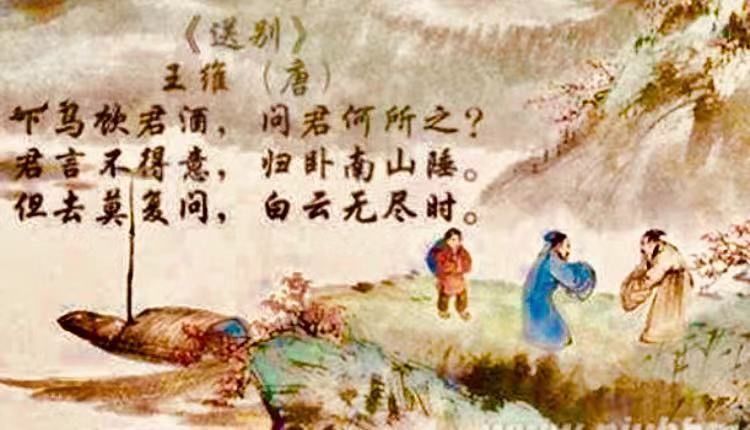 《送别》
王维（唐）
下鸟饮君酒，问君何所之？
君言不得意，归卧南山陲。
但去莫复问，白云无尽时。